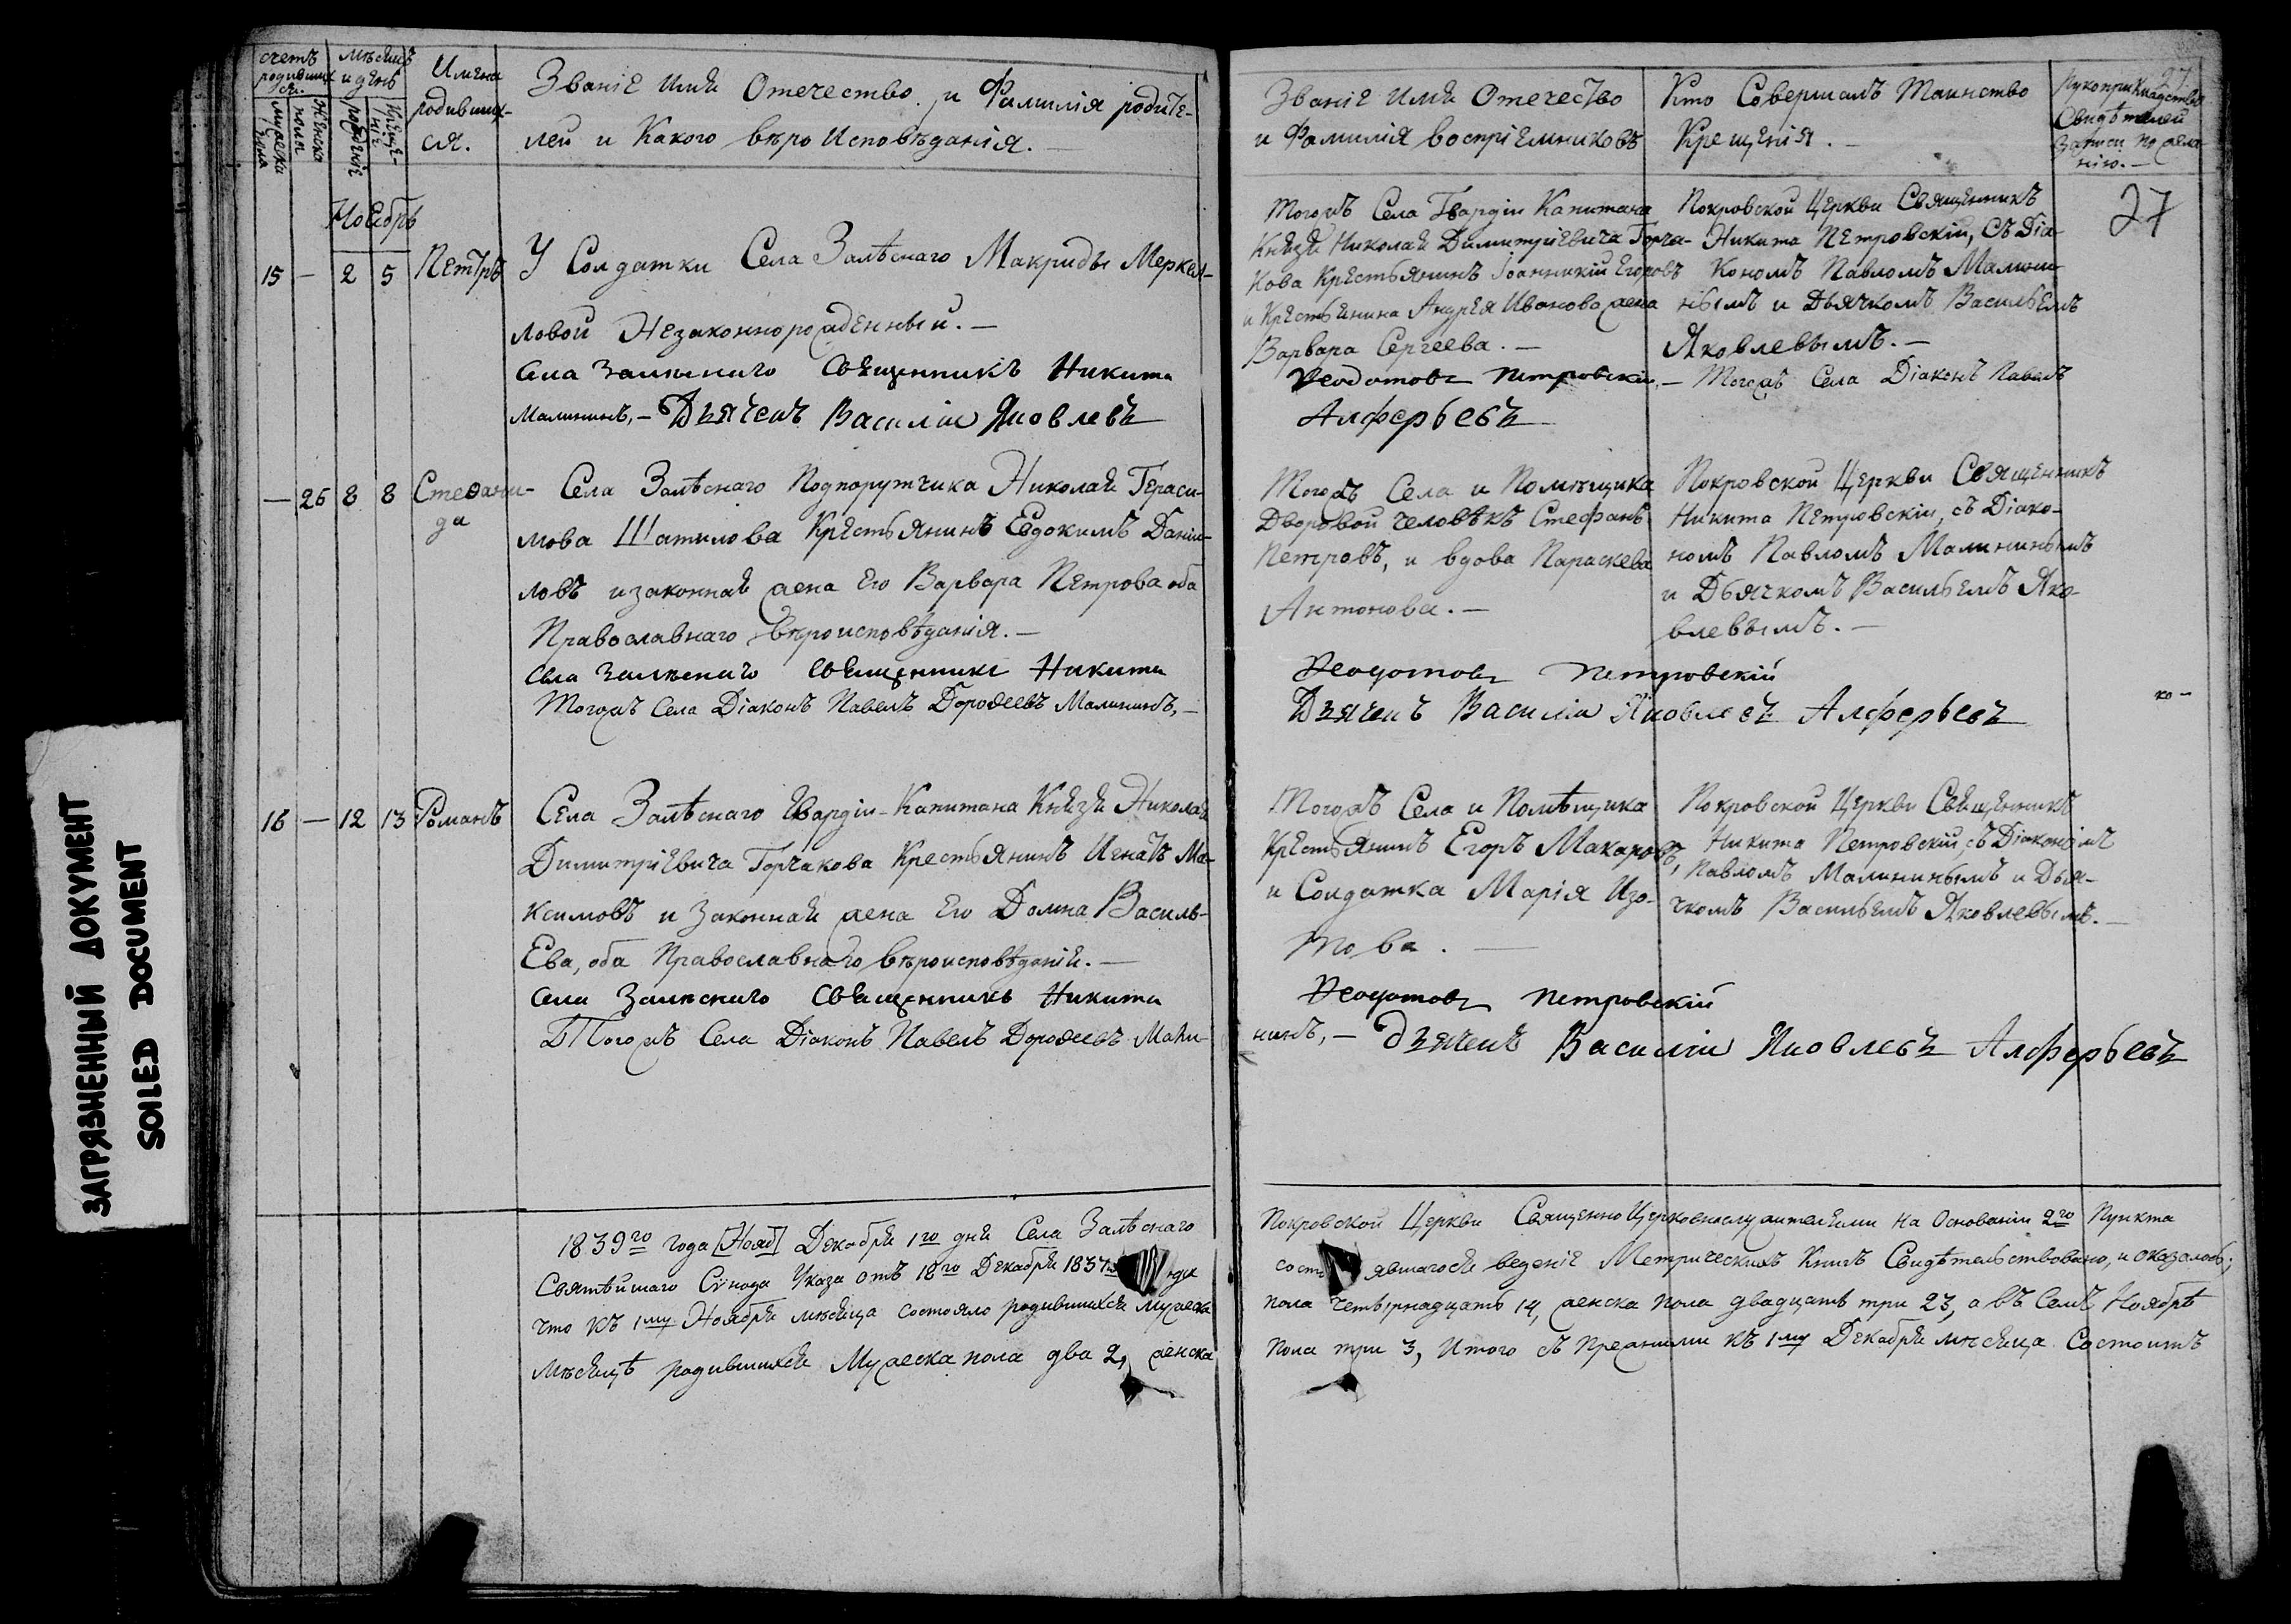 счетъ
родивших
ся.
мѣсяцъ
и день
Имена
родивших-
ся.
Званіе Имя Отечество и Фамилія родите-
лей и Какого вѣро Исповѣданія.
мужеска
пола
женска
пола
рожденія
крещенія
Ноябрь
15 — 2 5 Петръ
У Солдатки Села Залѣснаго Макриды Меркул-
ловой Незаконнорожденный. —
Села Залѣснаго Священникъ Никита
Малининъ, — Дьячекъ Василій Яковлевъ
— 26 8 8 Стефани-
да
Села Залѣснаго Подпорутчика Николая Гераси-
мова Шатилова Крестьянинъ Евдокимъ Дании-
ловъ и законная жена Его Варвара Петрова оба
Православнаго вѣроисповѣданія. —
Села Залѣснаго Священникъ Никита
Тогожъ Села Діаконъ Павелъ Дорофеевъ Малининъ, —
16 — 12 13 Романъ
Села Залѣснаго Гвардіи Капитана Князя Николая
Димитріевича Горчакова Крестьянинъ Игнатъ Ма-
ксимовъ и Законная жена Его Домна Василь-
Ева, оба Православнаго вѣроисповѣданія. —
Села Залѣснаго Священникъ Никита
Тогожъ Села Діаконъ Павелъ Дорофеевъ Мали-
1839го года [Нояб] Декабря 1го дня Села Залѣснаго
Святѣйшаго Сѵнода Указа отъ 18го Декабря 1837
что къ 1му Ноября мѣсяца состояло родившихся мужеска
мѣсяцѣ родившихся Мужеска пола два 2, женска
Званіе Имя Отечество
и Фамилія воспріемниковъ
Кто Совершалъ Таинство
Крещенія. —
Рукоприкладство
Свидѣтелей
Записи по жела-
нію. —
27
27
Тогожъ Села Гвардіи Капитана
Князя Николая Димитріевича Горча-
кова Крестьянинъ Іоанникій Егоровъ
и Крестьянина Андрея Иванова жена
Варвара Сергеева. —
Покровской Церкви Священникъ
Никита Петровскій, Съ Діа-
кономъ Павломъ Малини-
нымъ и Дьячкомъ Васильемъ
Яковлевымъ. —
Феодотовъ Петровскій, — Тогожъ Села Діаконъ Павелъ
Алферьевъ
Тогожъ Села и Помѣщика
Дворовой человѣкъ Стефанъ
Петровъ, и вдова Параскева
Антонова. —
Покровской Церкви Священникъ
Никита Петровскій, съ Діако-
номъ Павломъ Малининымъ
и Дьячкомъ Васильемъ Яко-
влевымъ. —
Феодотовъ Петровскій
Дьячекъ Василій Яковлевъ Алферьевъ
ко —
Тогожъ Села и Помѣщика
Крестьянинъ Егоръ Макаровъ,
и Солдатка Марія Изо-
това. —
Покровской Церкви Священникъ
Никита Петровскій, съ Діакономъ
Павломъ Малининымъ и Дья-
чкомъ Васильемъ Яковлевымъ. —
Феодотовъ Петровскій
нинъ, — Дьячекъ Василій Яковлевъ Алферьевъ
Покровской Церкви СвященноЦерковнослужителями на Основаніи 2го Пункта
явшагося веденіе Метрическихъ Книгъ Свидѣтельствовано, и оказалось;
пола четырнадцать 14, женска пола двадцать три 23, а въ Семъ Ноябрѣ
пола три 3, Итого съ Прежними къ 1му Декабря мѣсяца Состоитъ
ЗАГРЯЗНЕННЫЙ ДОКУМЕНТ
SOILED DOCUMENT